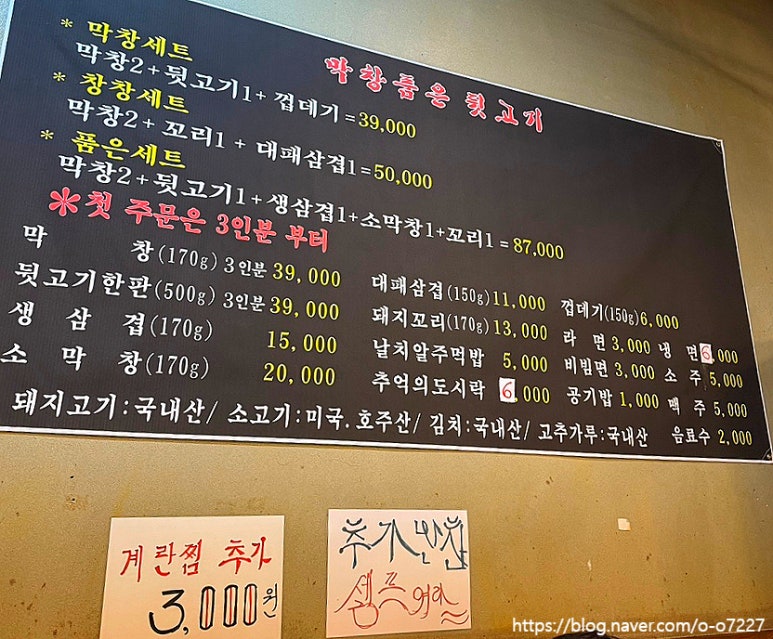 막창품은 뒷고기
* 막창세트
막창2+뒷고기1+껍데기=39,000
* 창창세트
막창2+꼬리1+대패삼겹1=50,000
* 품은세트
막창2+뒷고기1+생삼겹1+소막창1+꼬리1=87,000
*첫 주문은 3인분 부터
막 창(170g) 3인분 39,000
뒷고기한판(500g) 3인분 39,000
생 삼 겹(170g) 15,000
소 막 창(170g) 20,000
대패삼겹(150g)11,000
돼지꼬리(170g)13,000
날치알주먹밥 5,000
추억의도시락 6,000
껍데기(150g)6,000
라 면 3,000
비빔면 3,000
공기밥 1,000
냉 면6,000
소 주 5,000
맥 주 5,000
음료수 2,000
돼지고기:국내산/ 소고기:미국.호주산/ 김치:국내산/ 고추가루:국내산
계란찜 추가
3,000원
추가반찬
셀프예요
https://blog.naver.com/o-o7227